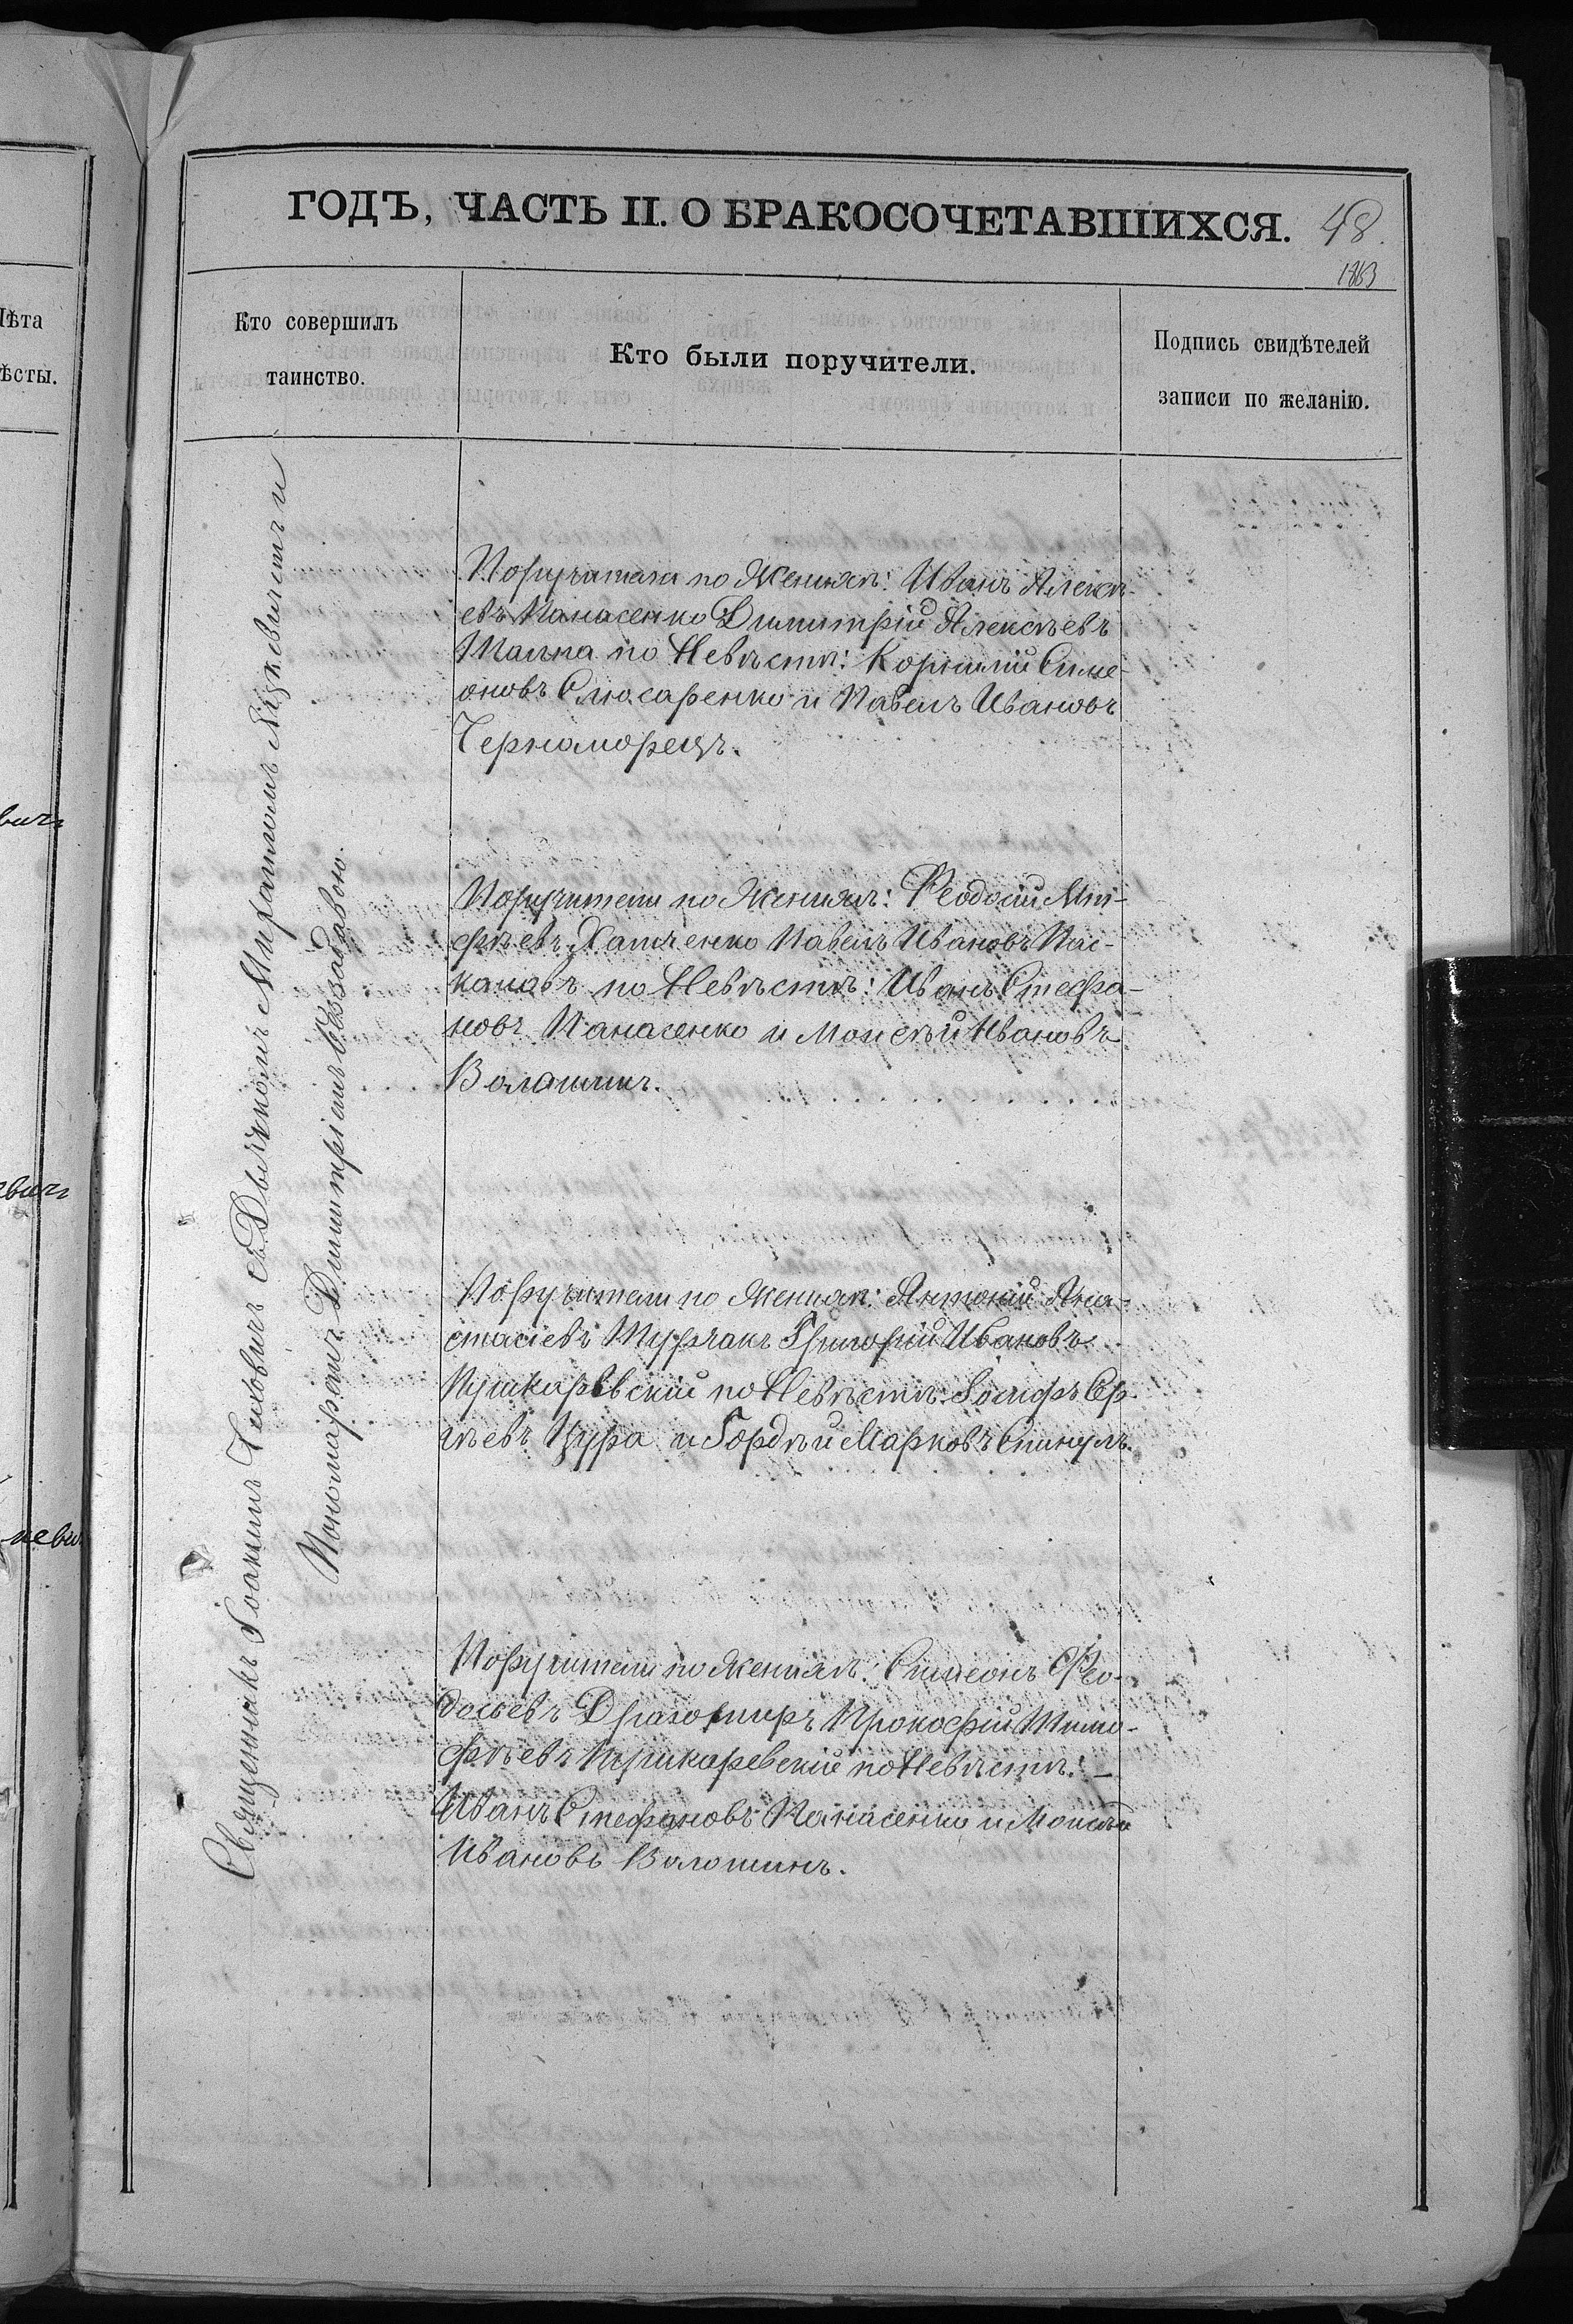 ГОДЪ, ЧАСТЬ II. О БРАКОСОЧЕТАВШИХСЯ. 48.
1863
Лѣта
ѣсты.
Кто совершилъ
таинство.
Кто были поручители.
Подпись свидѣтелей
записи по желанію.
Священникъ Іоакимъ съ Дьячкомъ и
Пономаремъ Димитріемъ
Поручители по Женихѣ: Иванъ Алексѣ-
евъ Панасенко Димитрій Алексѣевъ
по Невѣстѣ: Корнилій Симе-
оновъ Слюсаренко и Павелъ Ивановъ
Черноморецъ.
Поручители по Женихѣ: Ѳеодосій Мат-
фѣевъ Павелъ Ивановъ Пас-
каловъ по Невѣстѣ: Иванъ Стефа-
новъ Панасенко и Моисей Ивановъ
Волошинъ.
Поручители по Женихѣ: Антоній Ана-
стасіевъ Турчакъ Григорій Ивановъ
Пушкаревскій по Невѣстѣ: Іосифъ Сер-
гѣевъ Цура и Гордѣй Марковъ
Поручители по Женихѣ: Симеонъ Ѳео-
досьевъ Прокофій Тимо-
фѣевъ Пушкаревскій по Невѣстѣ: –
Иванъ Стефановъ Панасенко и Моисей
Ивановъ Волошинъ.
вичъ
евичъ